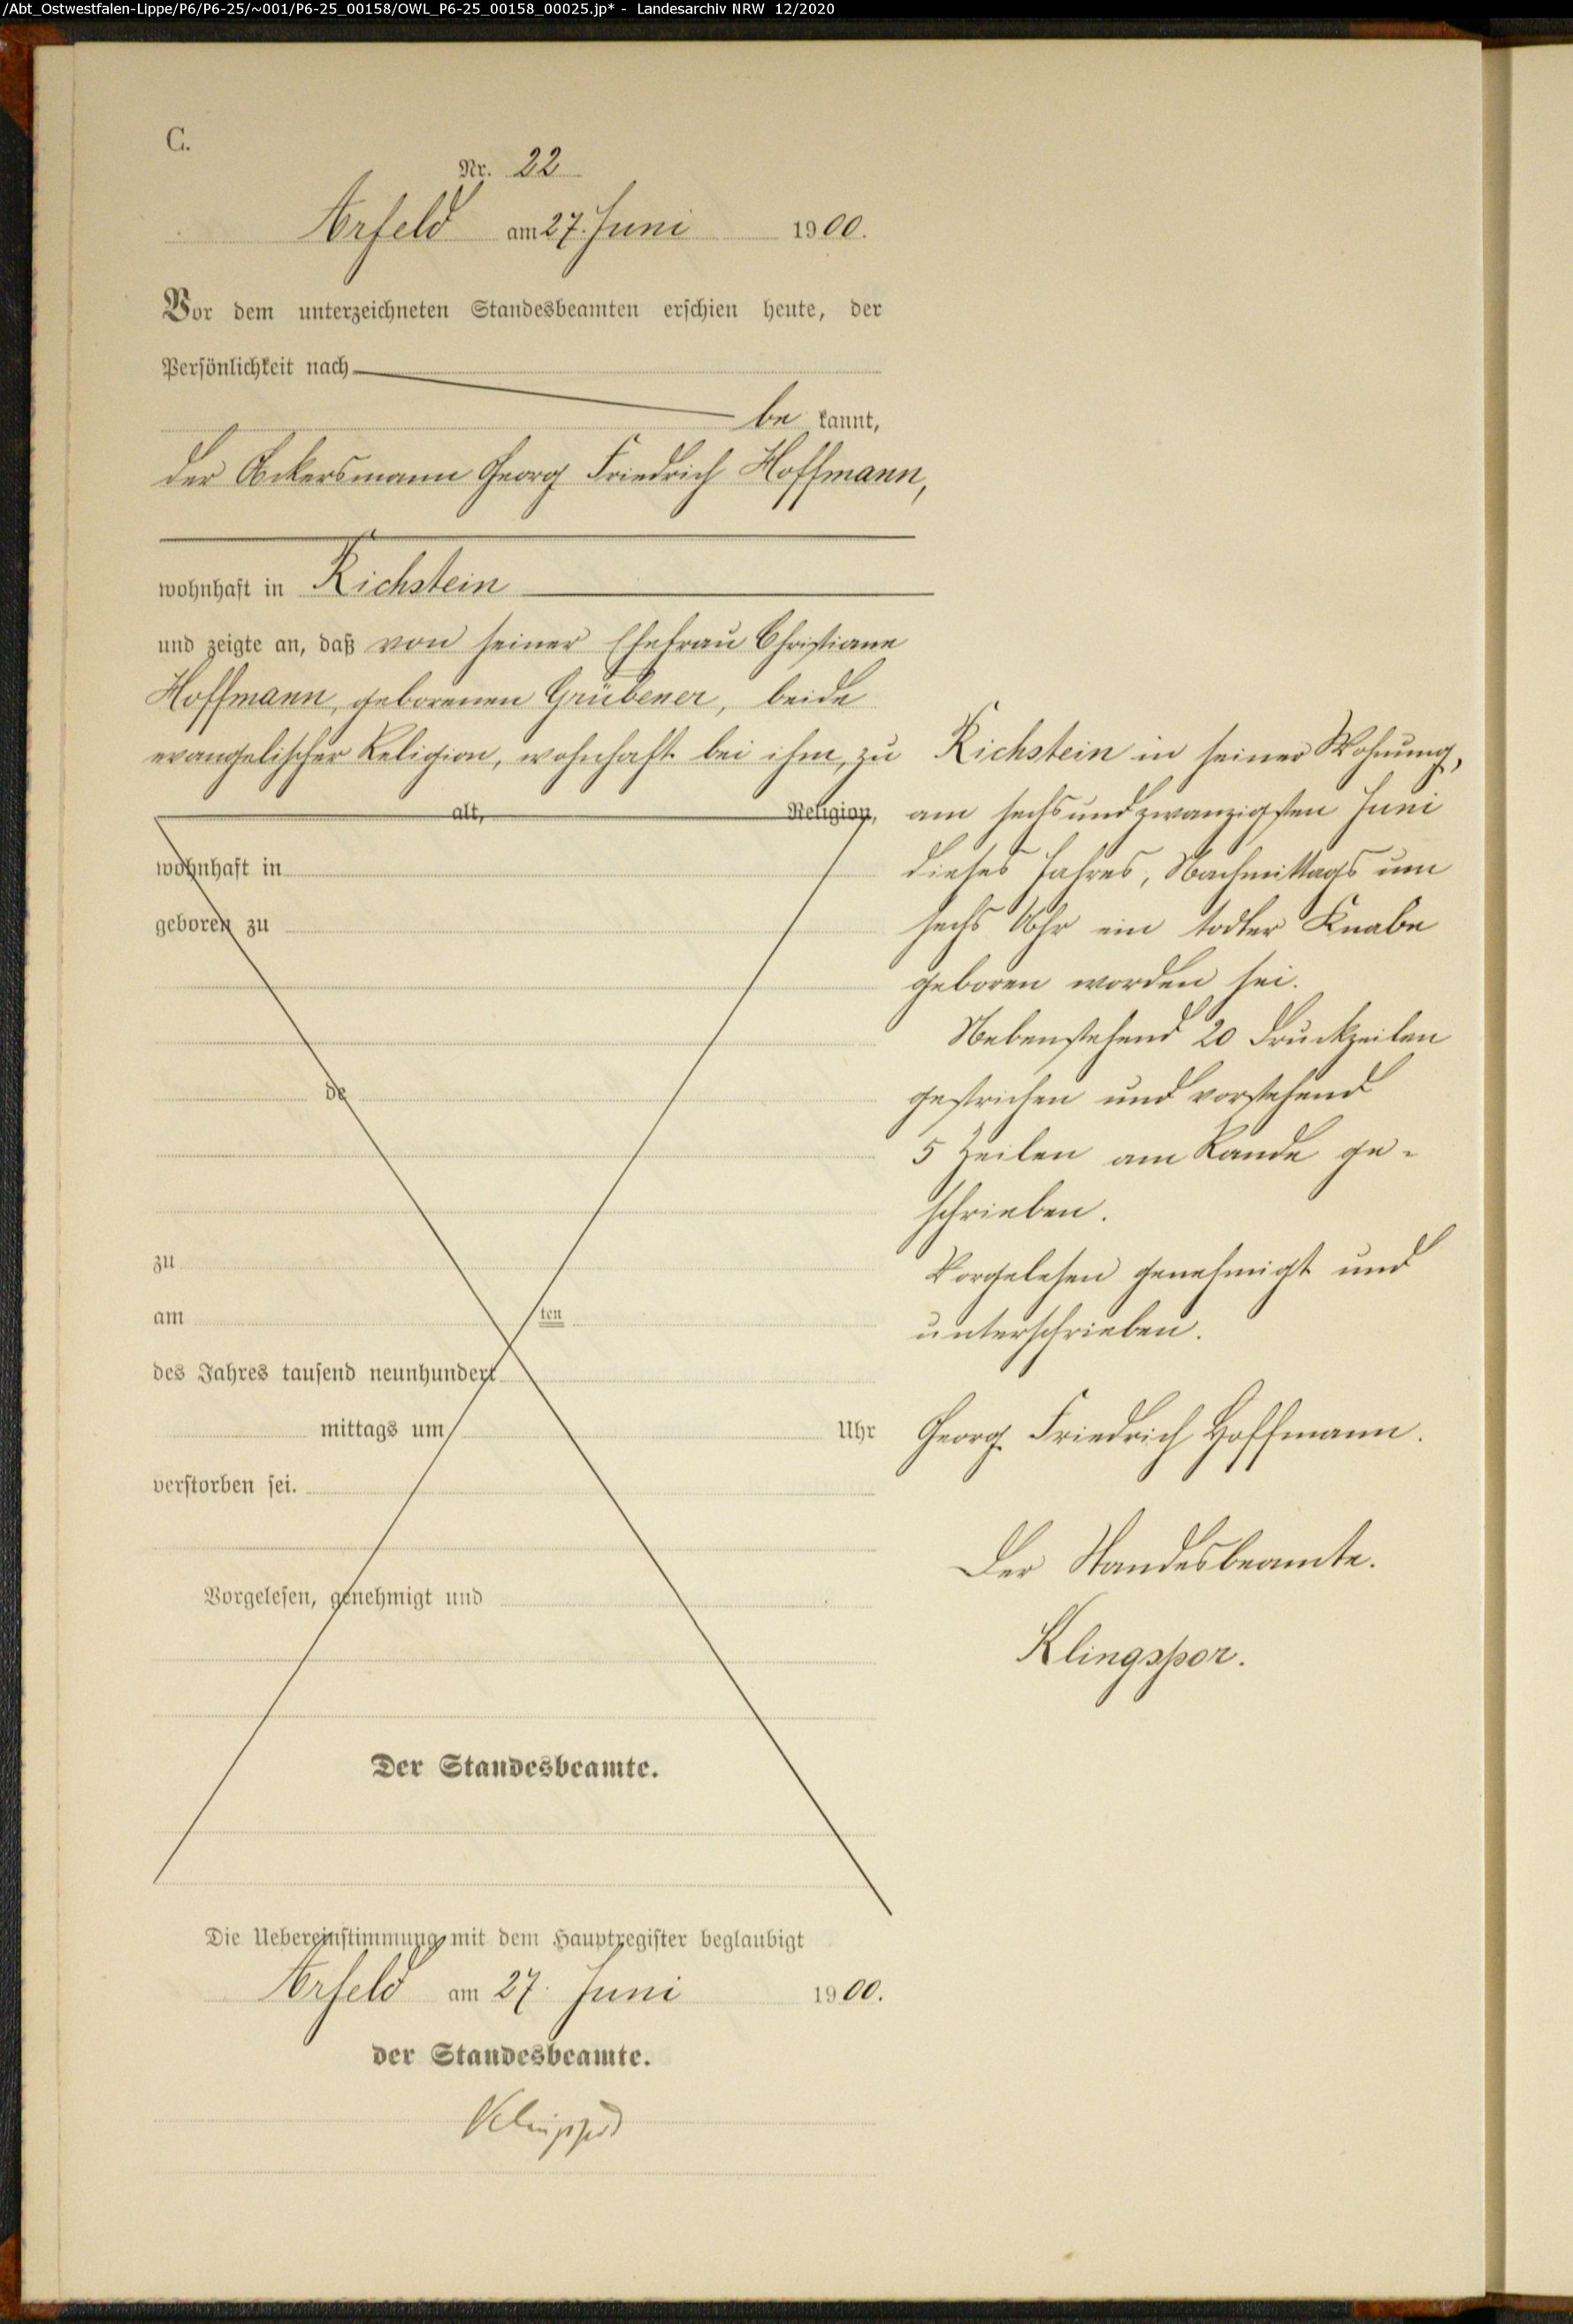 /Abt_Ostwestfalen-Lippe/P6/P6-25/~001/P6-25_00158/OWL_P6-25_00158_00025.jp* - Landesarchiv NRW 12/2020
C.
Nr. 22
Arfeld am 27. Juni 1900.
Vor dem unterzeichneten Standesbeamten erschien heute, der
Persönlichkeit nach
be kannt,
der Ackersmann Georg Friedrich Hoffmann,
wohnhaft in Richstein
und zeigte an, daß von seiner Ehefrau Christiane
Hoffmann, geborenen Grübener, beide
evangelischer Religion, wohnhaft bei ihm, zu
alt, Religion,
wohnhaft in
geboren zu
de
zu
am ten
des Jahres tausend neunhundert
mittags um Uhr
verstorben sei.
Vorgelesen, genehmigt und
Der Standesbeamte.
Richstein in seiner Wohnung,
am sechsundzwanzigsten Juni
dieses Jahres, Nachmittags um
sechs Uhr ein todter Knabe
geboren worden sei.
Nebenstehend 20 Druckzeilen
gestrichen und vorstehend
5 Zeilen am Rande ge-
schrieben.
Vorgelesen genehmigt und
unterschrieben.
Georg Friedrich Hoffmann.
Der Standesbeamte.
Klingspor.
Die Uebereinstimmung mit dem Hauptregister beglaubigt
Arfeld am 27. Juni 1900.
der Standesbeamte.
Klingspor